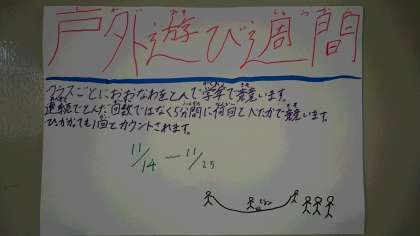 戸外遊び週間
クラスごとにおおなわをとんで学年で競います。
連続でとんだ回数ではなく5分間に何回とべたかで競います。
ひっかかっても1回とカウントされます。
11/14 ー 11/25